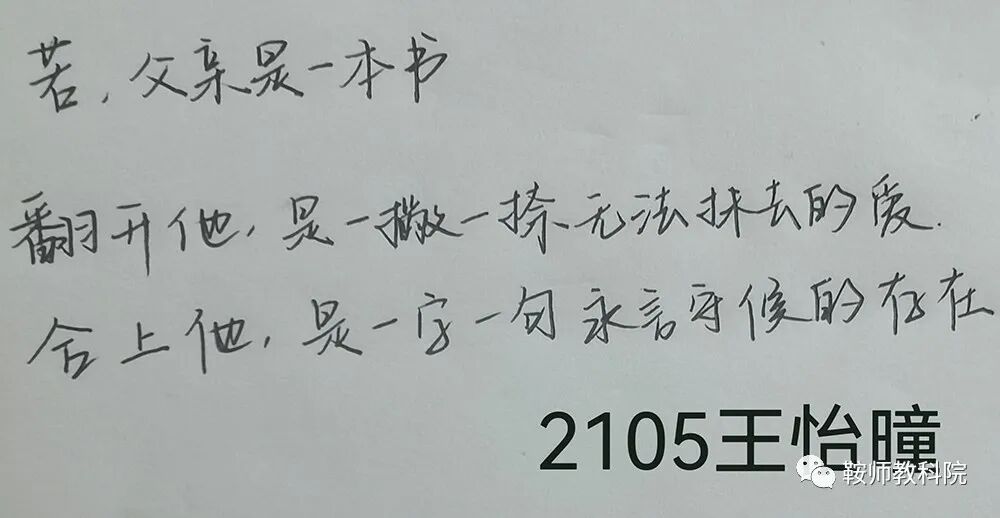 若，父亲是一本书
翻开他，是一撇一捺无法抹去的爱.
合上他，是一字一句永言守候的存在
2105王怡曈
鞍师教科院